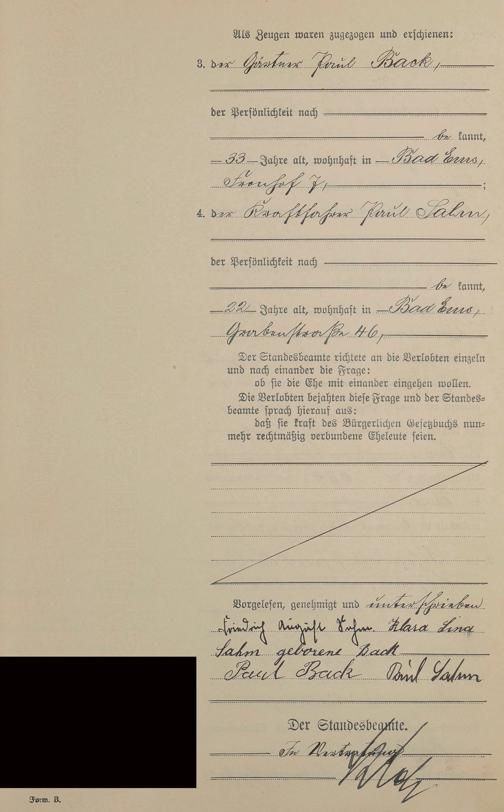 Als Zeugen waren zugezogen und erschienen:
3. der Gärtner Paul Back,
der Persönlichkeit nach
be kannt,
33 Jahre alt, wohnhaft in Bad Ems,
Fronhof 7, ;
4. der Kraftfahrer Paul Sahm,
der Persönlichkeit nach
be kannt,
22 Jahre alt, wohnhaft in Bad Ems,
Grabenstraße 46,
Der Standesbeamte richtete an die Verlobten einzeln
und nach einander die Frage:
ob sie die Ehe mit einander eingehen wollen.
Die Verlobten bejahten diese Frage und der Standes=
beamte sprach hierauf aus:
daß sie kraft des Bürgerlichen Gesetzbuchs nun=
mehr rechtmäßig verbundene Eheleute seien.
Vorgelesen, genehmigt und unterschrieben
Friedrich August Sahm. Klara Lina
Sahm geborene Back
Paul Back Paul Sahm
Der Standesbeamte.
In Vertretung
Form. B.